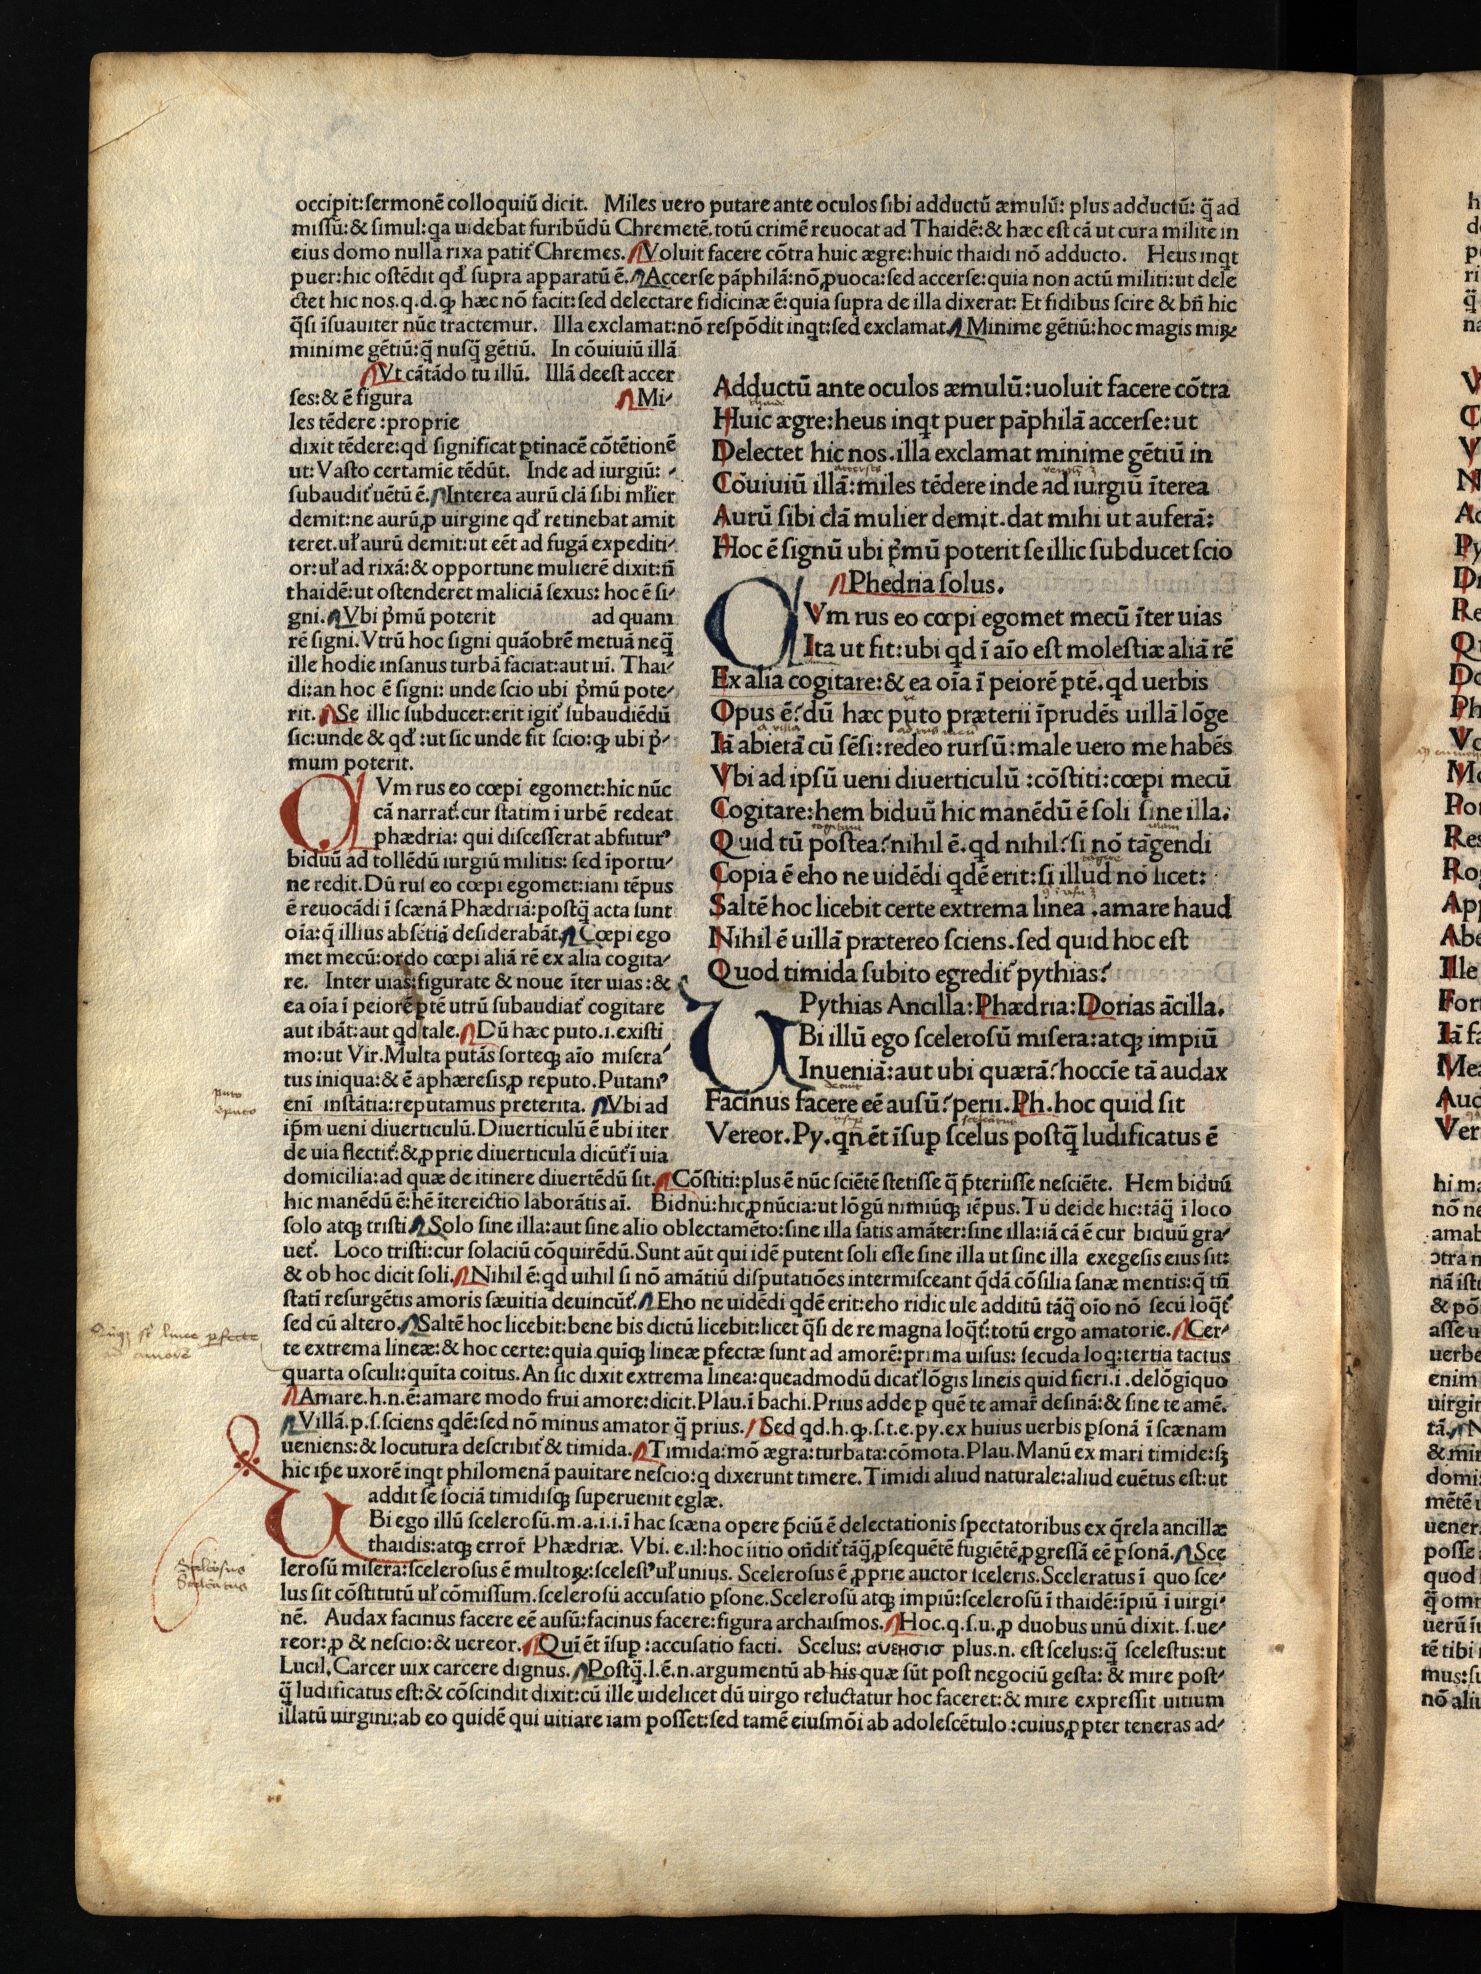 occipit:sermonē colloquiū dicit. Miles uero putare ante oculos sibi adductū æmulū: plus adductū: q̄ ad
missū:& simul:qa uidebat furibūdū Chremetē.totū crimē reuocat ad Thaidē:& hæc est cā ut cura milite in
eius domo nulla rixa patit᷑ Chremes. Voluit facere cōtra huic ægre:huic thaidi nō adducto. Heus inqt
puer:hic ostēdit qd' supra apparatū ē. Accerse pāphilā:nō ꝓuoca:sed accerse:quia non actū militi:ut dele
ctet hic nos.q.d.ꝙ hæc nō facit:sed delectare fidicinæ ē:quia supra de illa dixerat: Et fidibus scire & bn̄ hic
q̄si īsuauiter nūc tractemur. Illa exclamat:nō respōdit inqt:sed exclamat. Minime gētiū:hoc magis miꝝ
minime gētiū:q̄ nusq̄ gētiū. In cōuiuiū illā
Vt cātādo tu illū. Illā deest accer
ses:& ē figura Mi-
les tēdere:proprie
dixit tēdere:qd significat ꝑtinacē cōtētionē
ut:Vasto certamīe tēdūt. Inde ad iurgiū:
subaudit᷑ uētū ē. Interea aurū clā sibi mł̄ier
demit:ne aurū ꝓ uirgine qd' retinebat amit
teret.uł aurū demit:ut eēt ad fugā expediti-
or:uł ad rixā:& opportune mulierē dixit:n̄
thaidē:ut ostenderet maliciā sexus: hoc ē si-
gni. Vbi p̄mū poterit ad quam
rē signi.Vtrū hoc signi quāobrē metuā neq̄
ille hodie insanus turbā faciat:aut uī. Thai-
di:an hoc ē signi: unde scio ubi p̄mū pote-
rit. Se illic subducet:erit igit᷑ subaudiēdū
sic:unde & qd':ut sic unde fit scio:ꝙ ubi p̄-
mum poterit.
CVm rus eo cœpi egomet:hic nūc
cā narrat᷑:cur statim i urbē redeat
phædria: qui discesserat abfuturꝰ
biduū ad tollēdū iurgiū militis: sed īportu-
ne redit.Dū rus eo cœpi egomet:iam tēpus
ē reuocādi ī scænā Phædriā:postq̄ acta sunt
oīa:q̄ illius absētiā desiderabāt. Cœpi ego
met mecū:ordo cœpi aliā rē ex alia cogita-
re. Inter uias:figurate & noue īter uias:&
ea oīa ī peiorē ptē utrū subaudiat᷑ cogitare
aut ibāt:aut qd tale. Dū hæc puto.i.existi
mo:ut Vir.Multa putās sorteqꝫ aīo misera-
tus iniqua:& ē aphæresis ꝓ reputo.Putamꝰ
enī instātia:reputamus preterita. Vbi ad
ip̄m ueni diuerticulū.Diuerticulū ē ubi iter
de uia flectit᷑:& ꝓprie diuerticula dicūt᷑ ī uia
domicilia:ad quæ de itinere diuertēdū sit. Cōstiti:plus ē nūc sciētē stetisse q̄ p̄teriisse nesciēte. Hem biduū
hic manēdū ē:hē ītereictio laborātis aī. Bidnū:hic ꝓnūcia:ut lōgū nimiūqꝫ tēpus.Tū deide hic:tāq̄ ī loco
solo atqꝫ tristi. Solo sine illa:aut sine alio oblectamēto:sine illa satis amāter:sine illa:iā cā ē cur biduū gra-
uet᷑. Loco tristi:cur solaciū cōquirēdū.Sunt aūt qui idē putent soli esse sine illa ut sine illa exegesis eius sit:
& ob hoc dicit soli. Nihil ē:qd uihil si nō amātiū disputatiōes intermisceant q̄dā cōsilia sanæ mentis:q̄ tn̄
stati resurgētis amoris sæuitia deuincūt᷑. Eho ne uidēdi qdē erit:eho ridic ule additū tāq̄ oīo nō secū loq̄t᷑
sed cū altero. Saltē hoc licebit:bene bis dictū licebit:licet q̄si de re magna loq̄t᷑:totū ergo amatorie. Cer-
te extrema lineæ:& hoc certe:quia quīqꝫ lineæ ꝑfectæ sunt ad amorē:prima uisus: secūda loq:tertia tactus
quarta osculi:quīta coitus.An sic dixit extrema linea:queadmodū dicat᷑ lōgis lineis quid fieri.i.de lōgīquo
Amare.h.n.ē:amare modo frui amore:dicit.Plau.ī bachi.Prius adde ꝑ quē te amar̄ desinā:& sine te amē.
Villā.p.s.sciens qdē:sed nō minus amator q̄ prius. Sed qd.h.ꝙ.s.t.e.py.ex huius uerbis ꝑsonā ī scænam
ueniens:& locutura describit᷑ & timida. Timida:mō ægra:turbata:cōmota.Plau.Manū ex mari timide:sꝫ
hic ip̄e uxorē inqt philomenā pauitare nescio:q dixerunt timere.Timidi aliud naturale:aliud euētus est:ut
addit se sociā timidisqꝫ superuenit eglæ.
UBi ego illū scelerosū.m.a.i.i.ī hac scæna opere p̄ciū ē delectationis spectatoribus ex q̄rela ancillæ
thaidis:atqꝫ error̄ Phædriæ. Vbi.e.il:hoc iitio on̄dit᷑ tāq̄ ꝓsequētē fugiētē ꝓgressā eē ꝑsonā. Sce
lerosū misera:scelerosus ē multoꝝ:scelestꝰ uł unius. Scelerosus ē ꝓprie auctor sceleris.Sceleratus ī quo sce-
lus sit cōstitutū uł cōmissum.scelerosū accusatio ꝑsone.Scelerosū atqꝫ impiū:scelerosū ī thaidē:īpiū ī uirgi-
nē. Audax facinus facere eē ausū:facinus facere:figura archaismos. Hoc.q.s.u.ꝓ duobus unū dixit. s.ue-
reor:ꝓ & nescio:& uereor. Quī ēt īsup:accusatio facti. Scelus: αυεησισ plus.n. est scelus:q̄ scelestus:ut
Lucil.Carcer uix carcere dignus. Postq̄.l.ē.n.argumentū ab his quæ sūt post negociū gesta: & mire post-
q̄ ludificatus est:& cōscindit dixit:cū ille uidelicet dū uirgo reluctatur hoc faceret:& mire expressit uitium
illatū uirgini:ab eo quidē qui uitiare iam posset:sed tamē eiusmōi ab adolescētulo:cuius ꝓpter teneras ad-
Adductū ante oculos æmulū:uoluit facere cōtra
Huic ægre:heus inqt puer pāphilā accerse:ut
Delectet hic nos.illa exclamat minime gētiū in
Cōuiuiū illā:miles tēdere inde ad iurgiū īterea
Aurū sibi clā mulier demit.dat mihi ut auferā:
Hoc ē signū ubi p̄mū poterit se illic subducet scio
Phedria solus.
CVm rus eo cœpi egomet mecū īter uias
Ita ut fit:ubi qd ī aīo est molestiæ aliā rē
Ex alia cogitare:& ea oīa ī peiorē ptē.qd uerbis
Opus ē?dū hæc puto præterii īprudēs uillā lōge
Iā abierā cū sēsi:redeo rursū:male uero me habēs
Vbi ad ipsū ueni diuerticulū:cōstiti:cœpi mecū
Cogitare:hem biduū hic manēdū ē soli sine illa.
Quid tū postea?nihil ē.qd nihil?si nō tāgendi
Copia ē eho ne uidēdi qdē erit:si illud nō licet:
Saltē hoc licebit certe extrema linea.amare haud
Nihil ē uillā prætereo sciens.sed quid hoc est
Quod timida subito egredit᷑ pythias?
Pythias Ancilla:Phædria:Dorias ācilla.
UBi illū ego scelerosū misera:atqꝫ impiū
Inueniā:aut ubi quærā?hoccīe tā audax
Facinus facere eē ausū?perii.Ph.hoc quid sit
Vereor.Py.qn ēt īsup scelus postq̄ ludificatus ē
puto
reputo
Quīqꝫ sūt linee perfecte
ad amorē
Scelerosus
Sceleratus